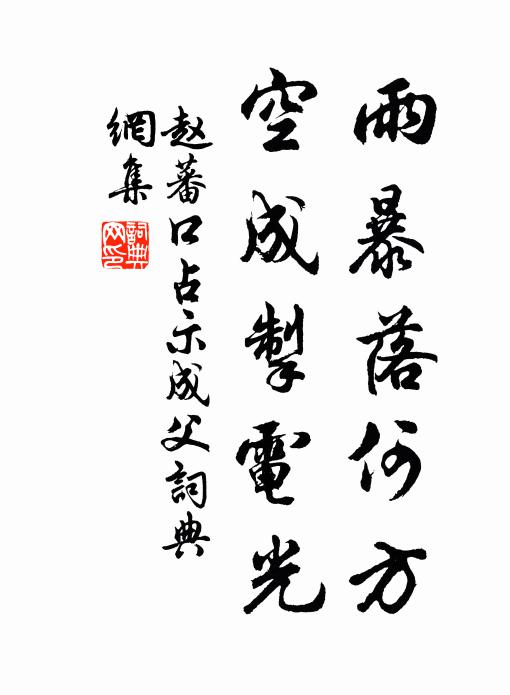 雨暴落何方
空成掣電光
赵蕃口占示成父詞典
網集
詞典
网印